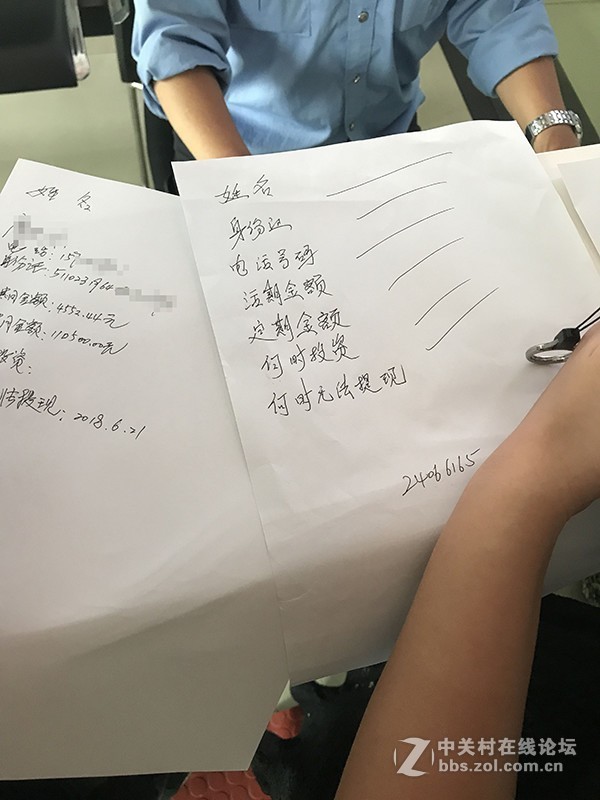 姓名
电话:159
身份证:5110231964
期金额:4552.44元
期金额:110500.00元
投资:
法提现:2018.6.21
姓名
身份证
电话号码
活期金额
定期金额
何时投资
何时无法提现
24066165
中关村在线论坛
bbs.zol.com.cn